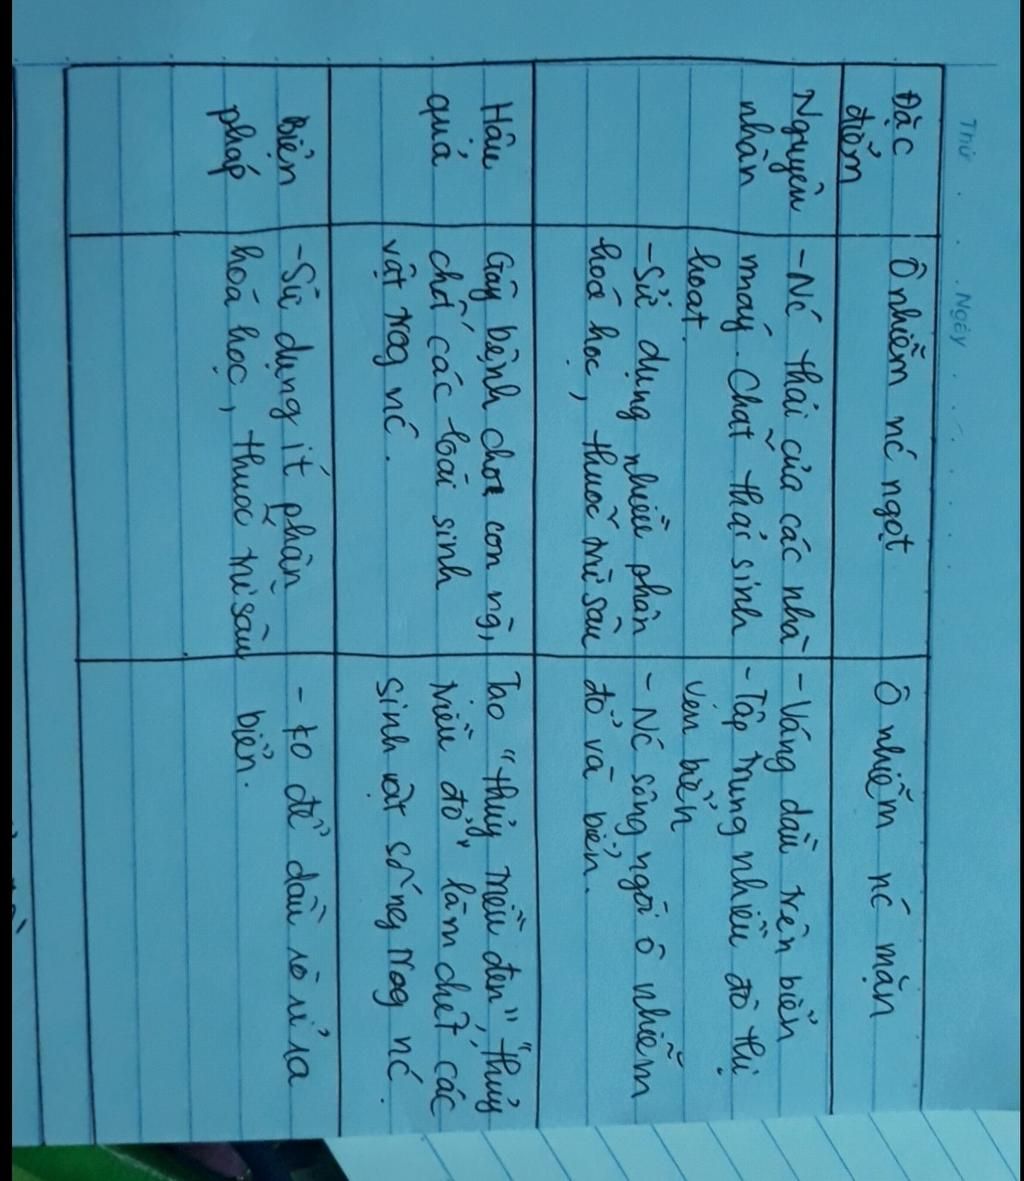 Thứ
Ngày
Đặc điểm
Ô nhiễm nć ngọt
Ô nhiễm nć mặn
Nguyên nhân
- Nć thải của các nhà
máy. Chất thải sinh
hoạt.
- Sử dụng nhiều phân
hoá học, thuốc trừ sâu
- Váng dầu trên biển
- Tập trung nhiều đô thị
ven biển
- Nć sông ngòi ô nhiễm
đổ và biển.
Hâu
quả
Gây bệnh cho con ng̀,
chó các loài sinh
vật trog nć.
Tạo "thủy triều đen", "thủy
triều đỏ" làm chết các
sinh vật sống trog nć.
Biện
pháp
- Sử dụng ít phân
hoá học, thuốc trừ sâu
- ko để dầu rò rỉ ra
biển.